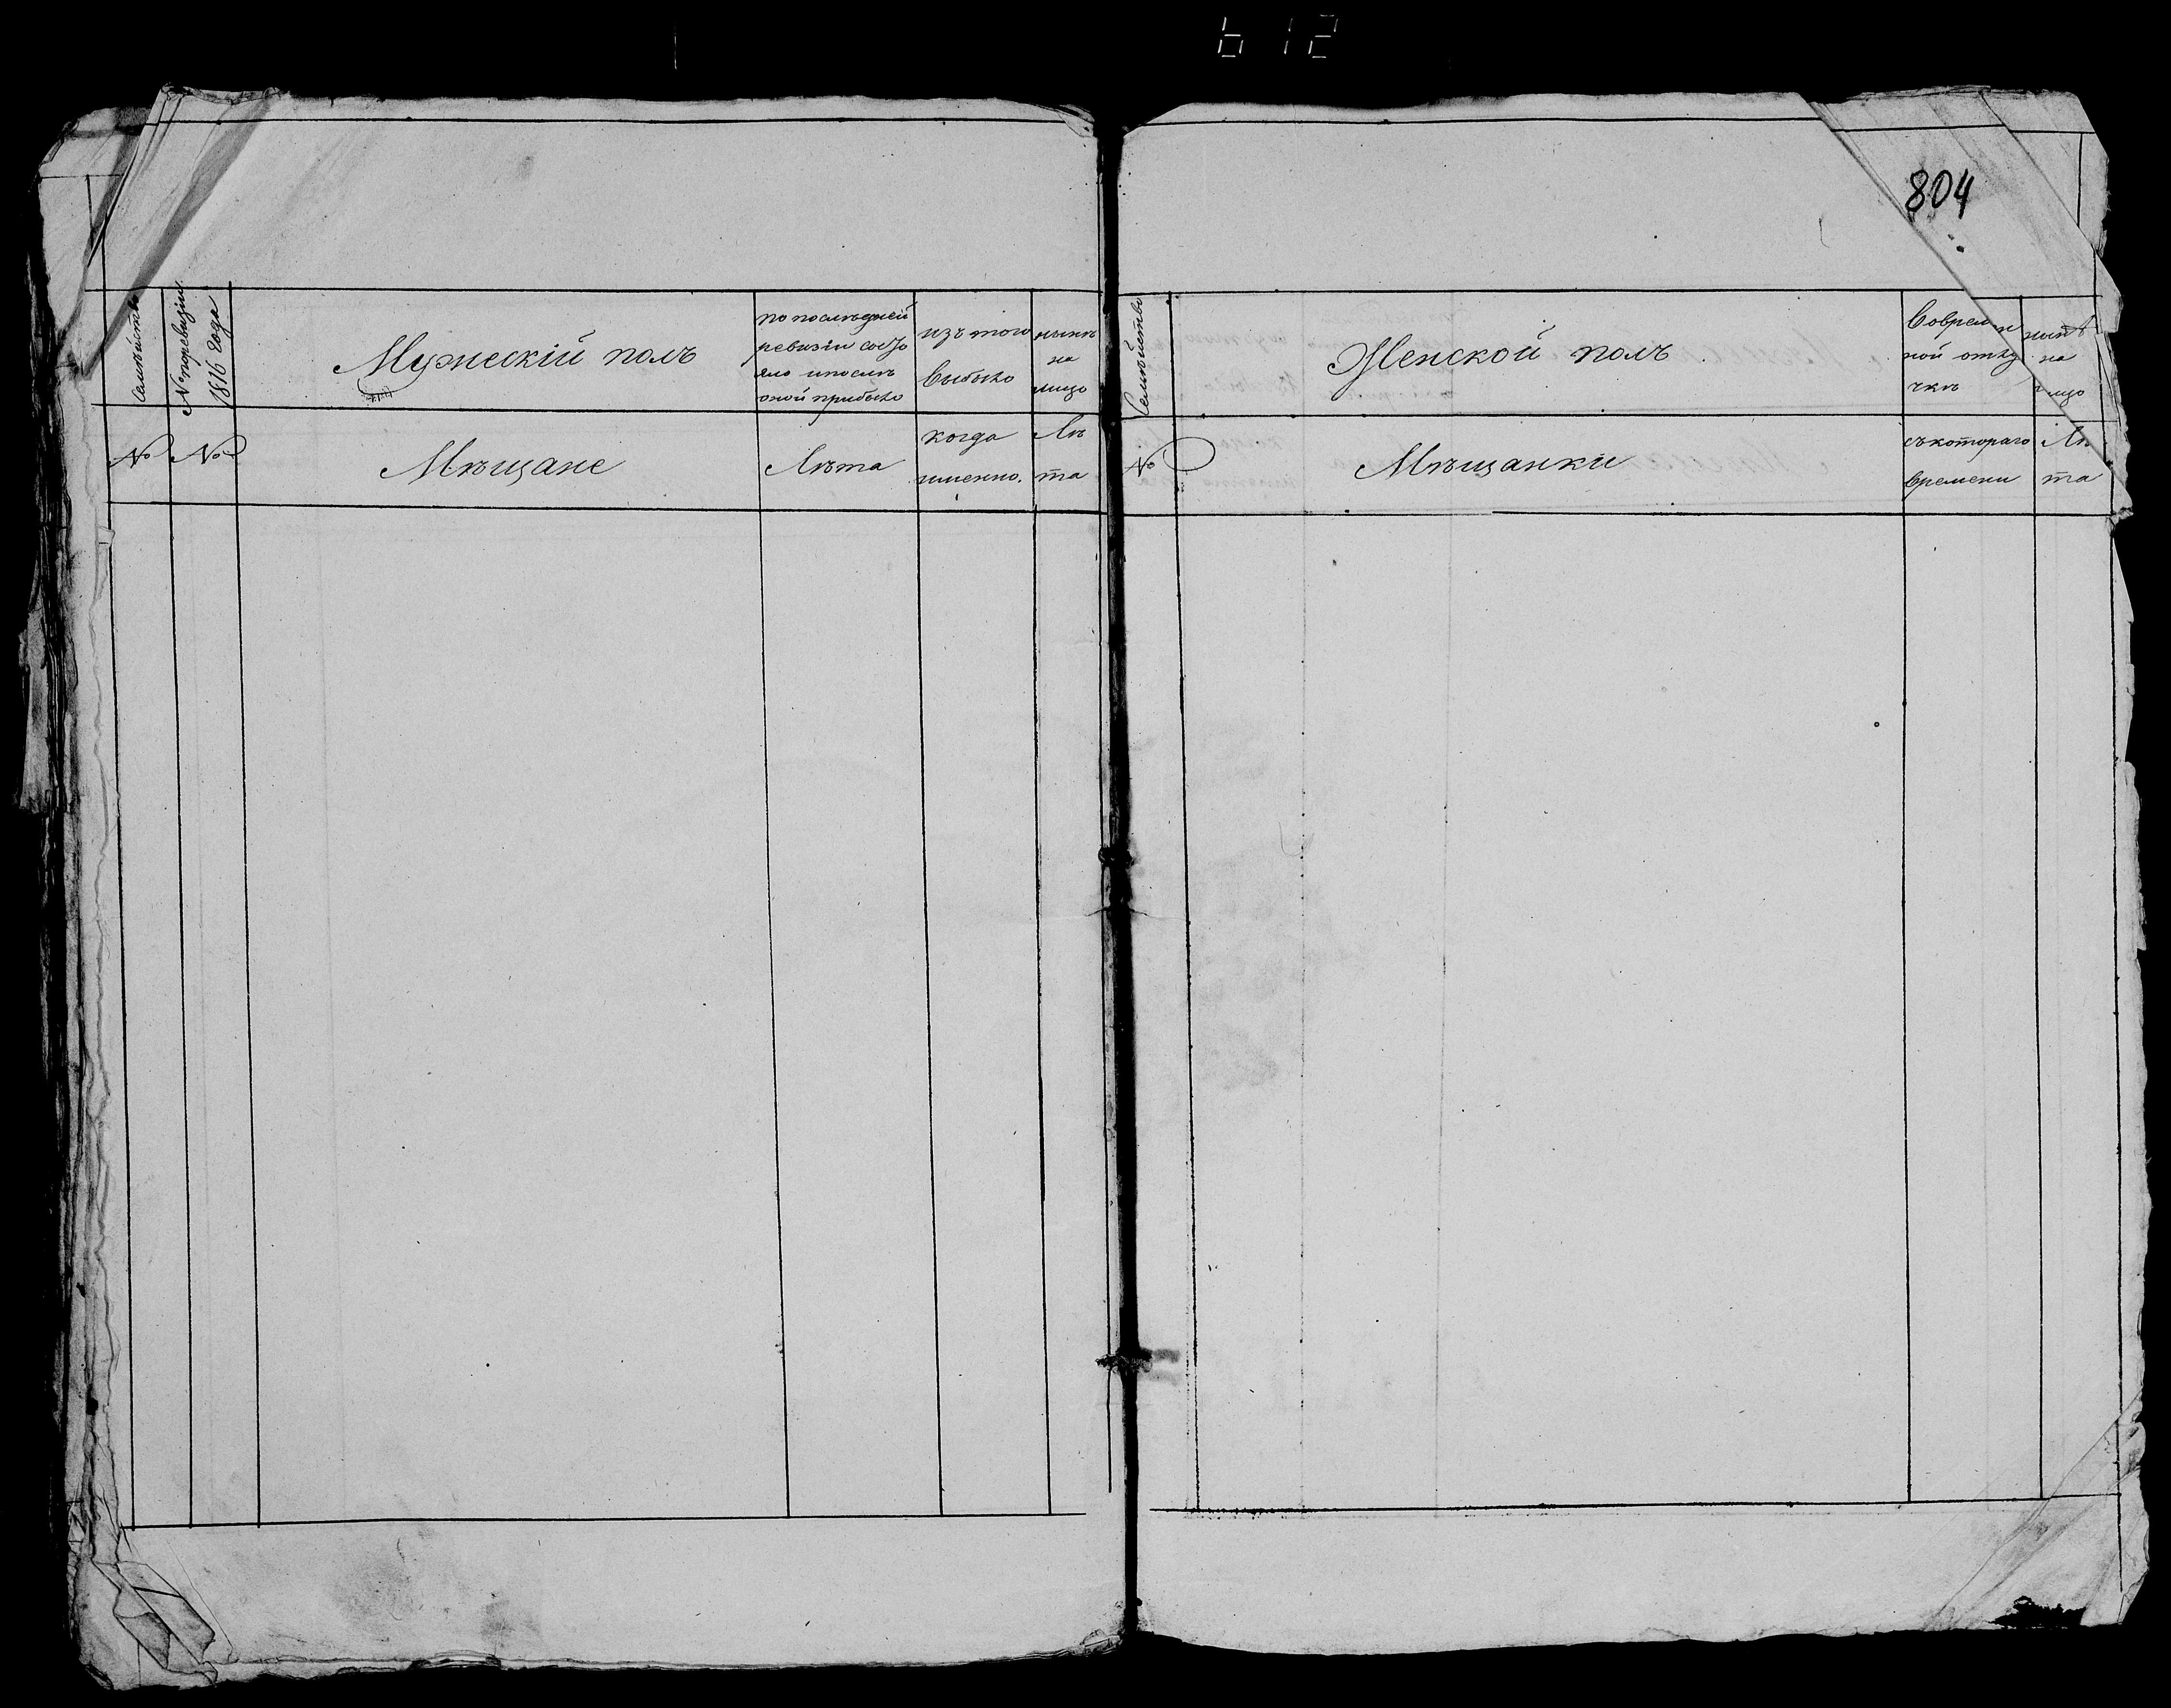 612
804
Семѣйство
№ поревизіи
1816 года
Мужескій полъ
по послѣдней
ревизіи состо
яло ипослѣ
оной прибыло
изъ того
выбыло
нынѣ
на
лицо
№
№
Мѣщане
Лѣта
когда
именно.
Лѣ
та
Семѣйство
Женской полъ
Времен
ной отлу
чкѣ
нынѣ
на
лицо
№
Мѣщанки
съкотораго
времени
Лѣ
та